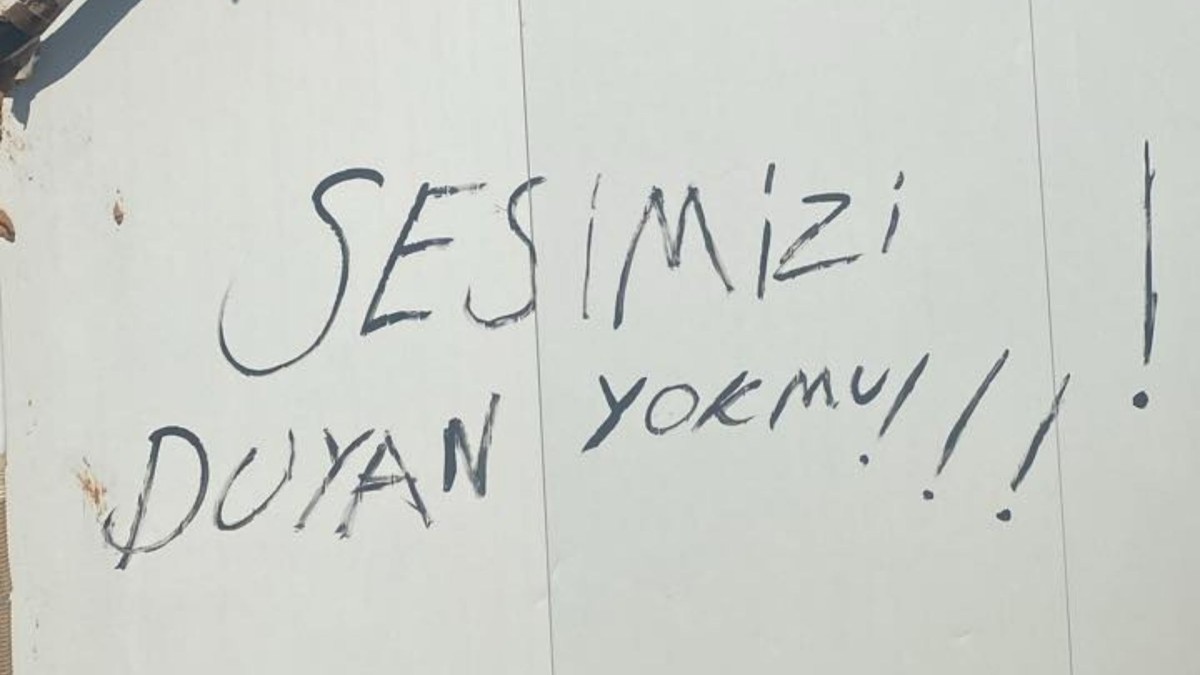 SESİMİZİ
DUYAN YOKMU!!! !